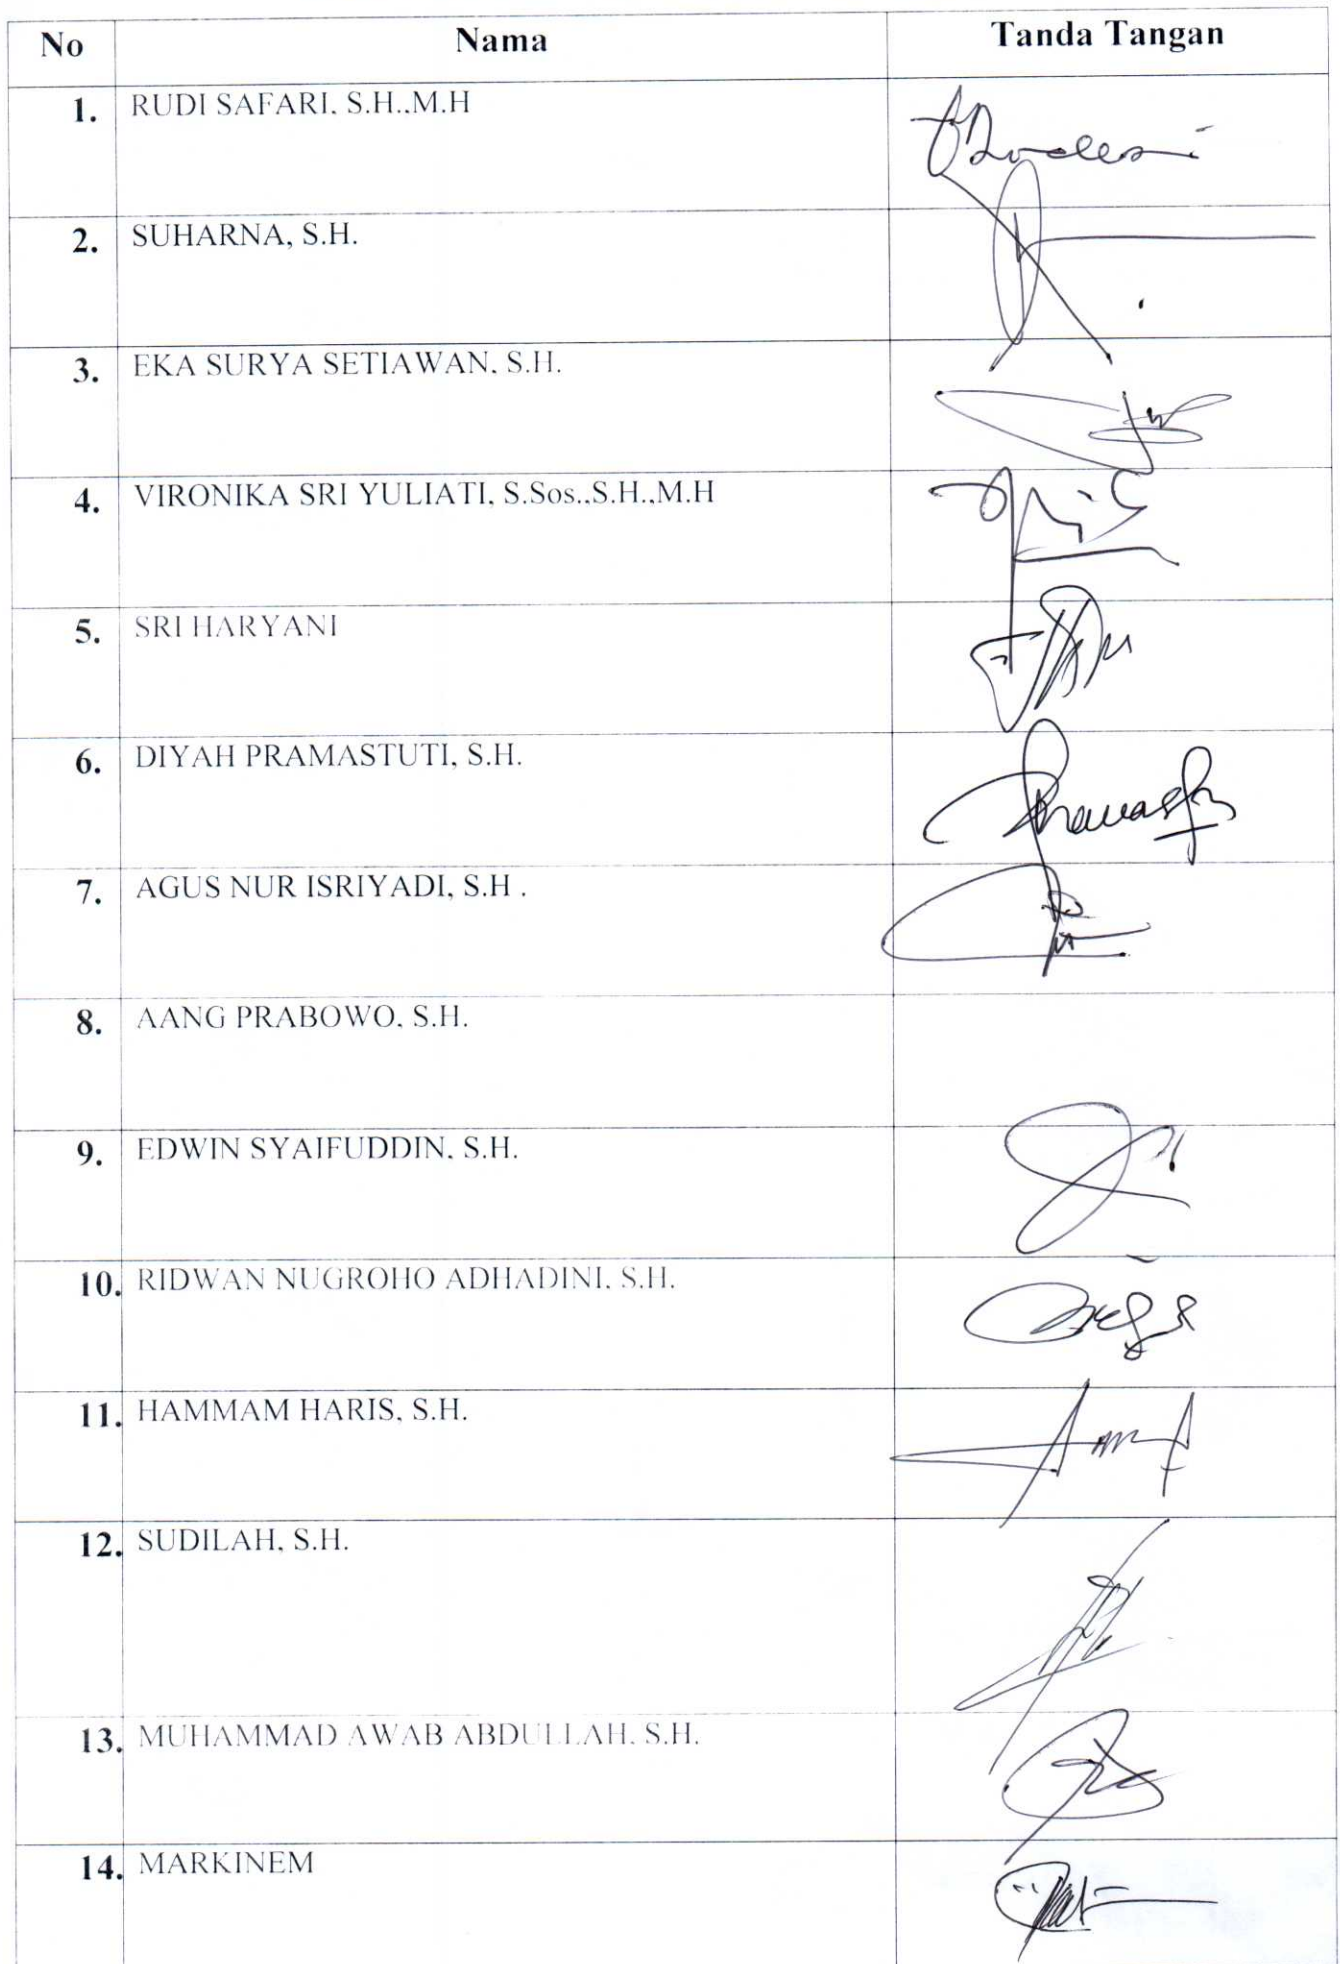 No Nama Tanda Tangan
1. RUDI SAFARI, S.H.,M.H
2. SUHARNA, S.H.
3. EKA SURYA SETIAWAN, S.H.
4. VIRONIKA SRI YULIATI, S.Sos.,S.H.,M.H
5. SRI HARYANI
6. DIYAH PRAMASTUTI, S.H.
7. AGUS NUR ISRIYADI, S.H .
8. AANG PRABOWO, S.H.
9. EDWIN SYAIFUDDIN, S.H.
10. RIDWAN NUGROHO ADHADINI, S.H.
11. HAMMAM HARIS, S.H.
12. SUDILAH, S.H.
13. MUHAMMAD AWAB ABDULLAH, S.H.
14. MARKINEM